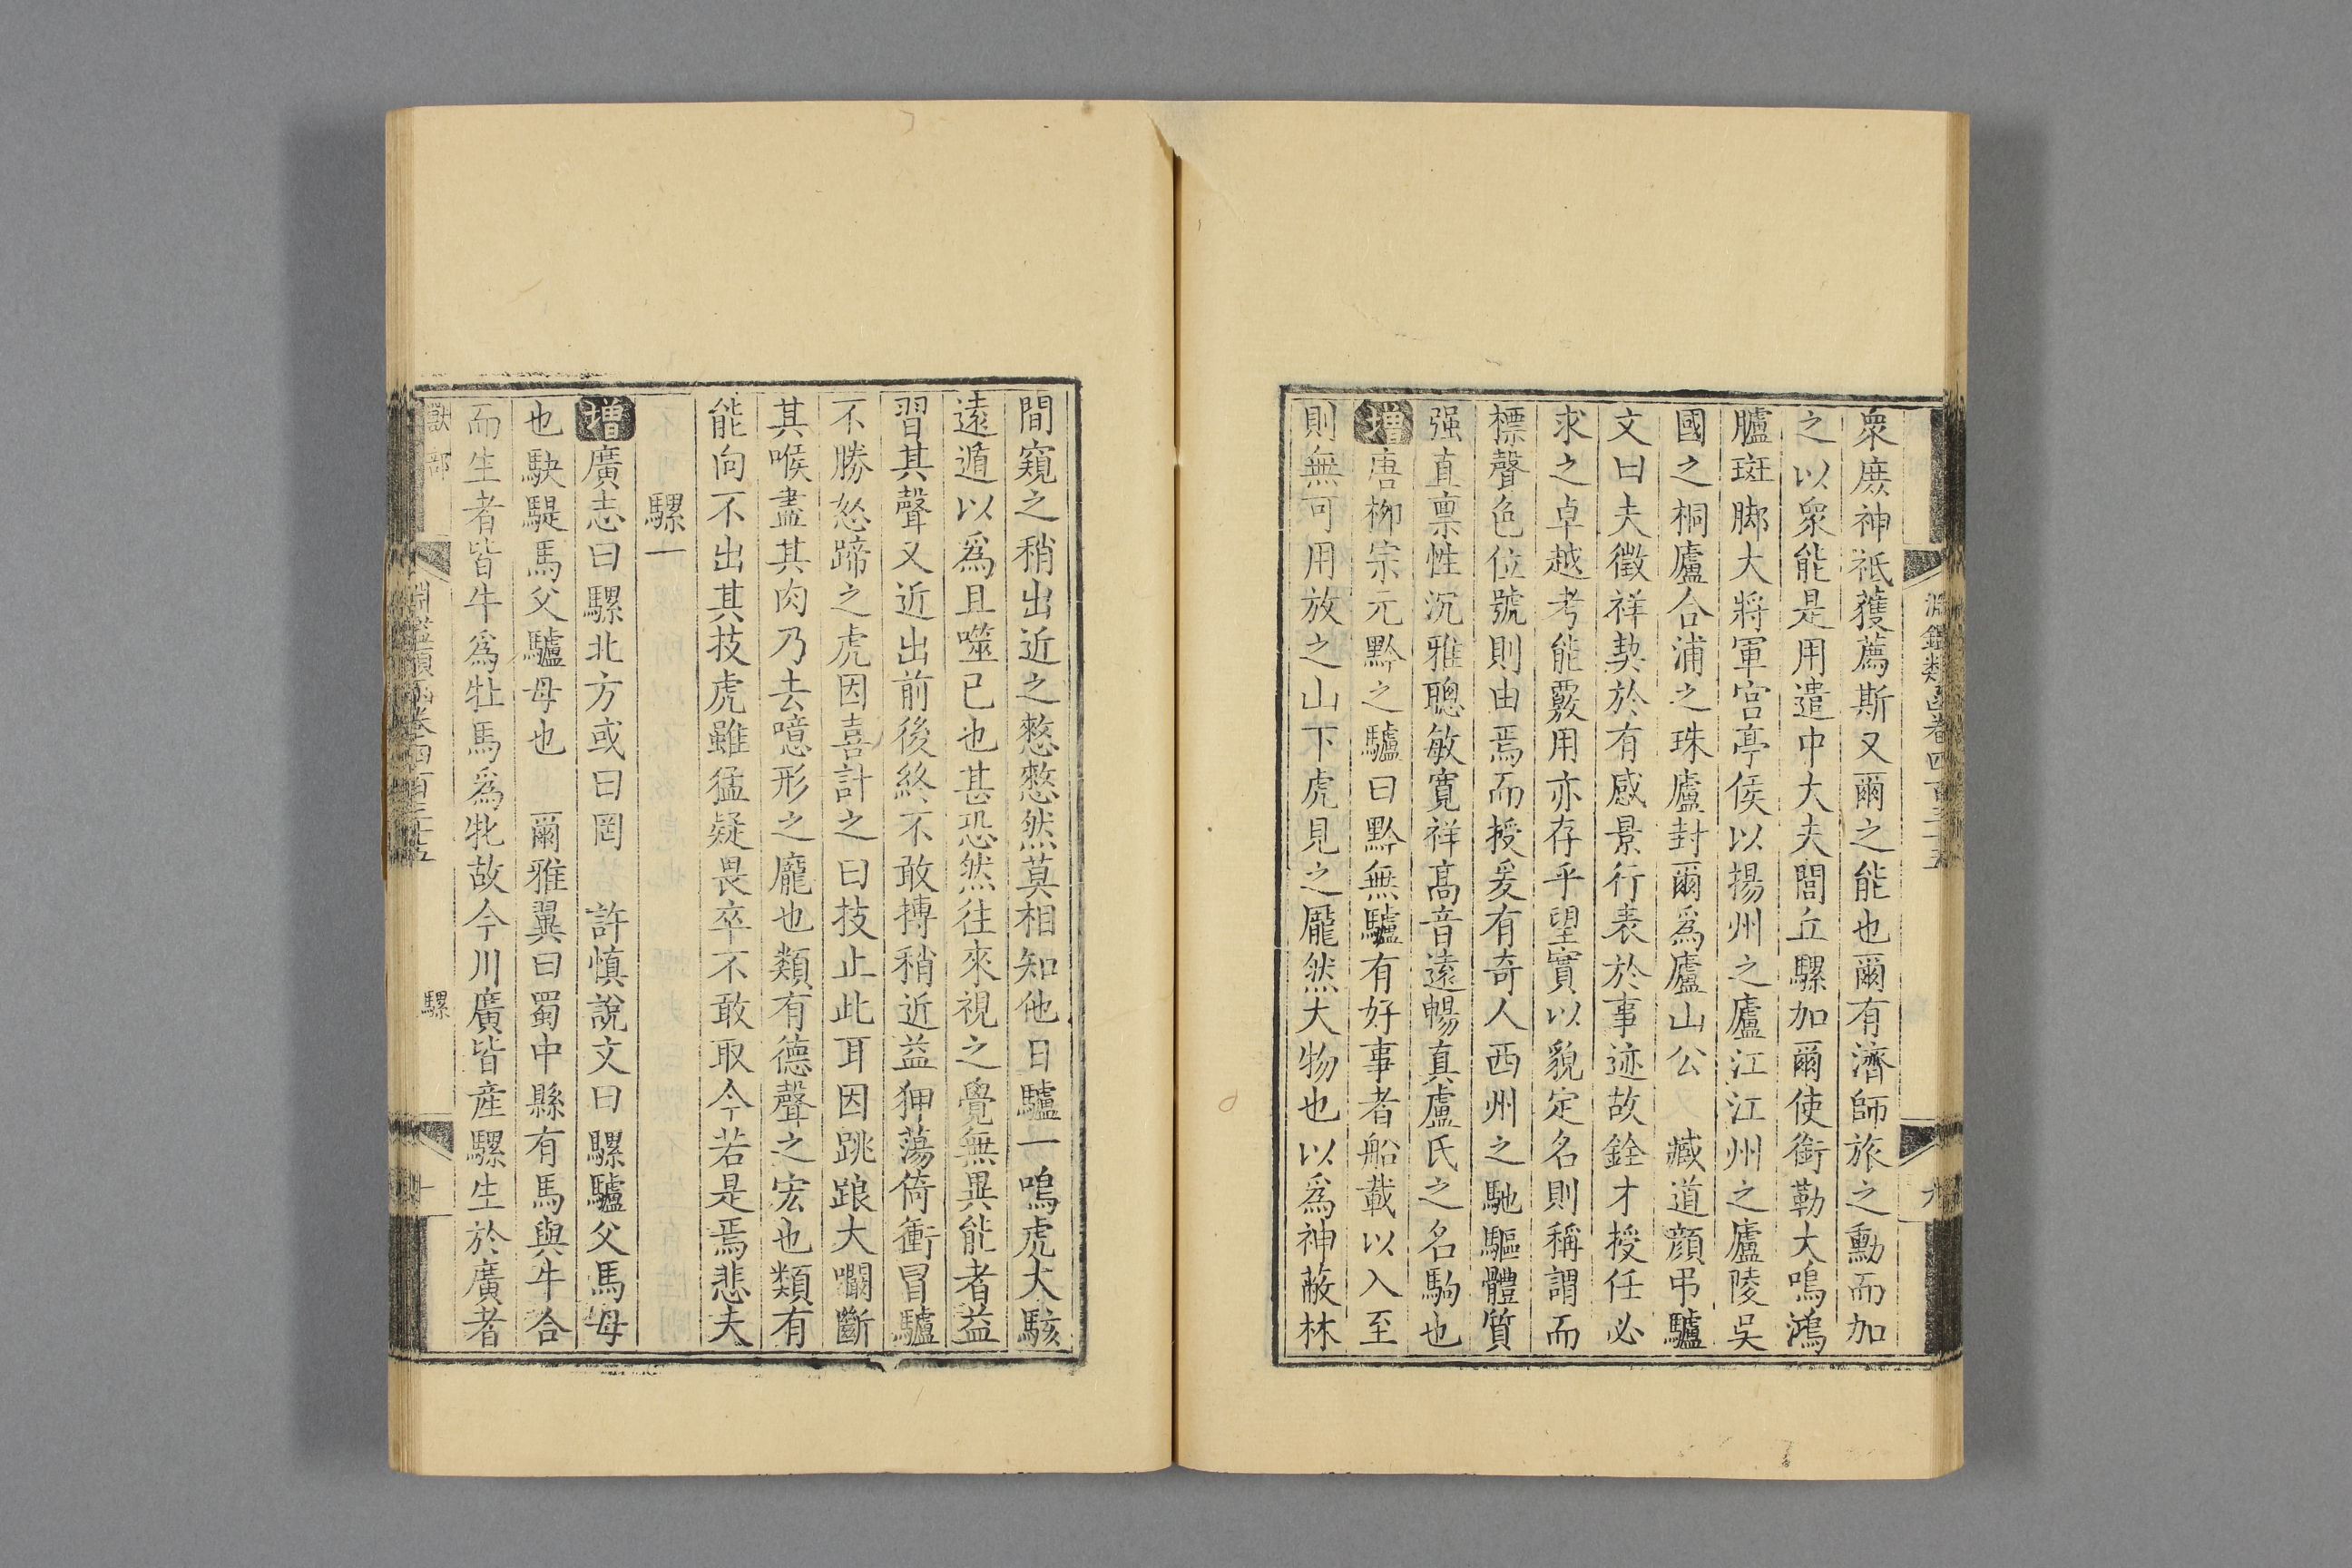 淵鑑類函卷四百三十五
九
衆庶神祗獲薦斯又爾之能也爾有濟師旅之勳而加
之以衆能是用遣中大夫閭丘騾加爾使銜勒大鳴鴻
臚斑脚大將軍宫亭侯以揚州之廬江江州之廬陵吳
國之桐廬合浦之珠廬封爾爲廬山公　臧道顔弔驢
文曰夫徵祥契於有感景行表於事迹故銓才授任必
求之卓越考能覈用亦存乎望實以貌定名則稱謂而
標聲色位號則由焉而授爰有奇人西州之馳驅體質
强直禀性沉雅聰敏寛祥高音遠暢真盧氏之名駒也
增唐栁宗元黔之驢曰黔無驢有好事者船載以入至
則無可用放之山下虎見之龐然大物也以爲神蔽林
間窺之稍出近之憖憖然莫相知他日驢一鳴虎大駭
遠遁以爲且噬已也甚恐然往來視之覺無異能者益
習其聲又近出前後終不敢搏稍近益狎蕩倚衝冒驢
不勝怒蹄之虎因喜計之曰技止此耳因跳踉大㘚斷
其喉盡其肉乃去噫形之龐也類有德聲之宏也類有
能向不出其技虎雖猛疑畏卒不敢取今若是焉悲夫
騾一
增廣志曰騾北方或曰罔　許慎說文曰騾驢父馬母
也駃騠馬父驢母也　爾雅翼曰蜀中縣有馬與牛合
而生者皆牛爲牡馬爲牝故今川廣皆産騾生於廣者
獸部
淵鑑類函卷四百三十五
騾
十